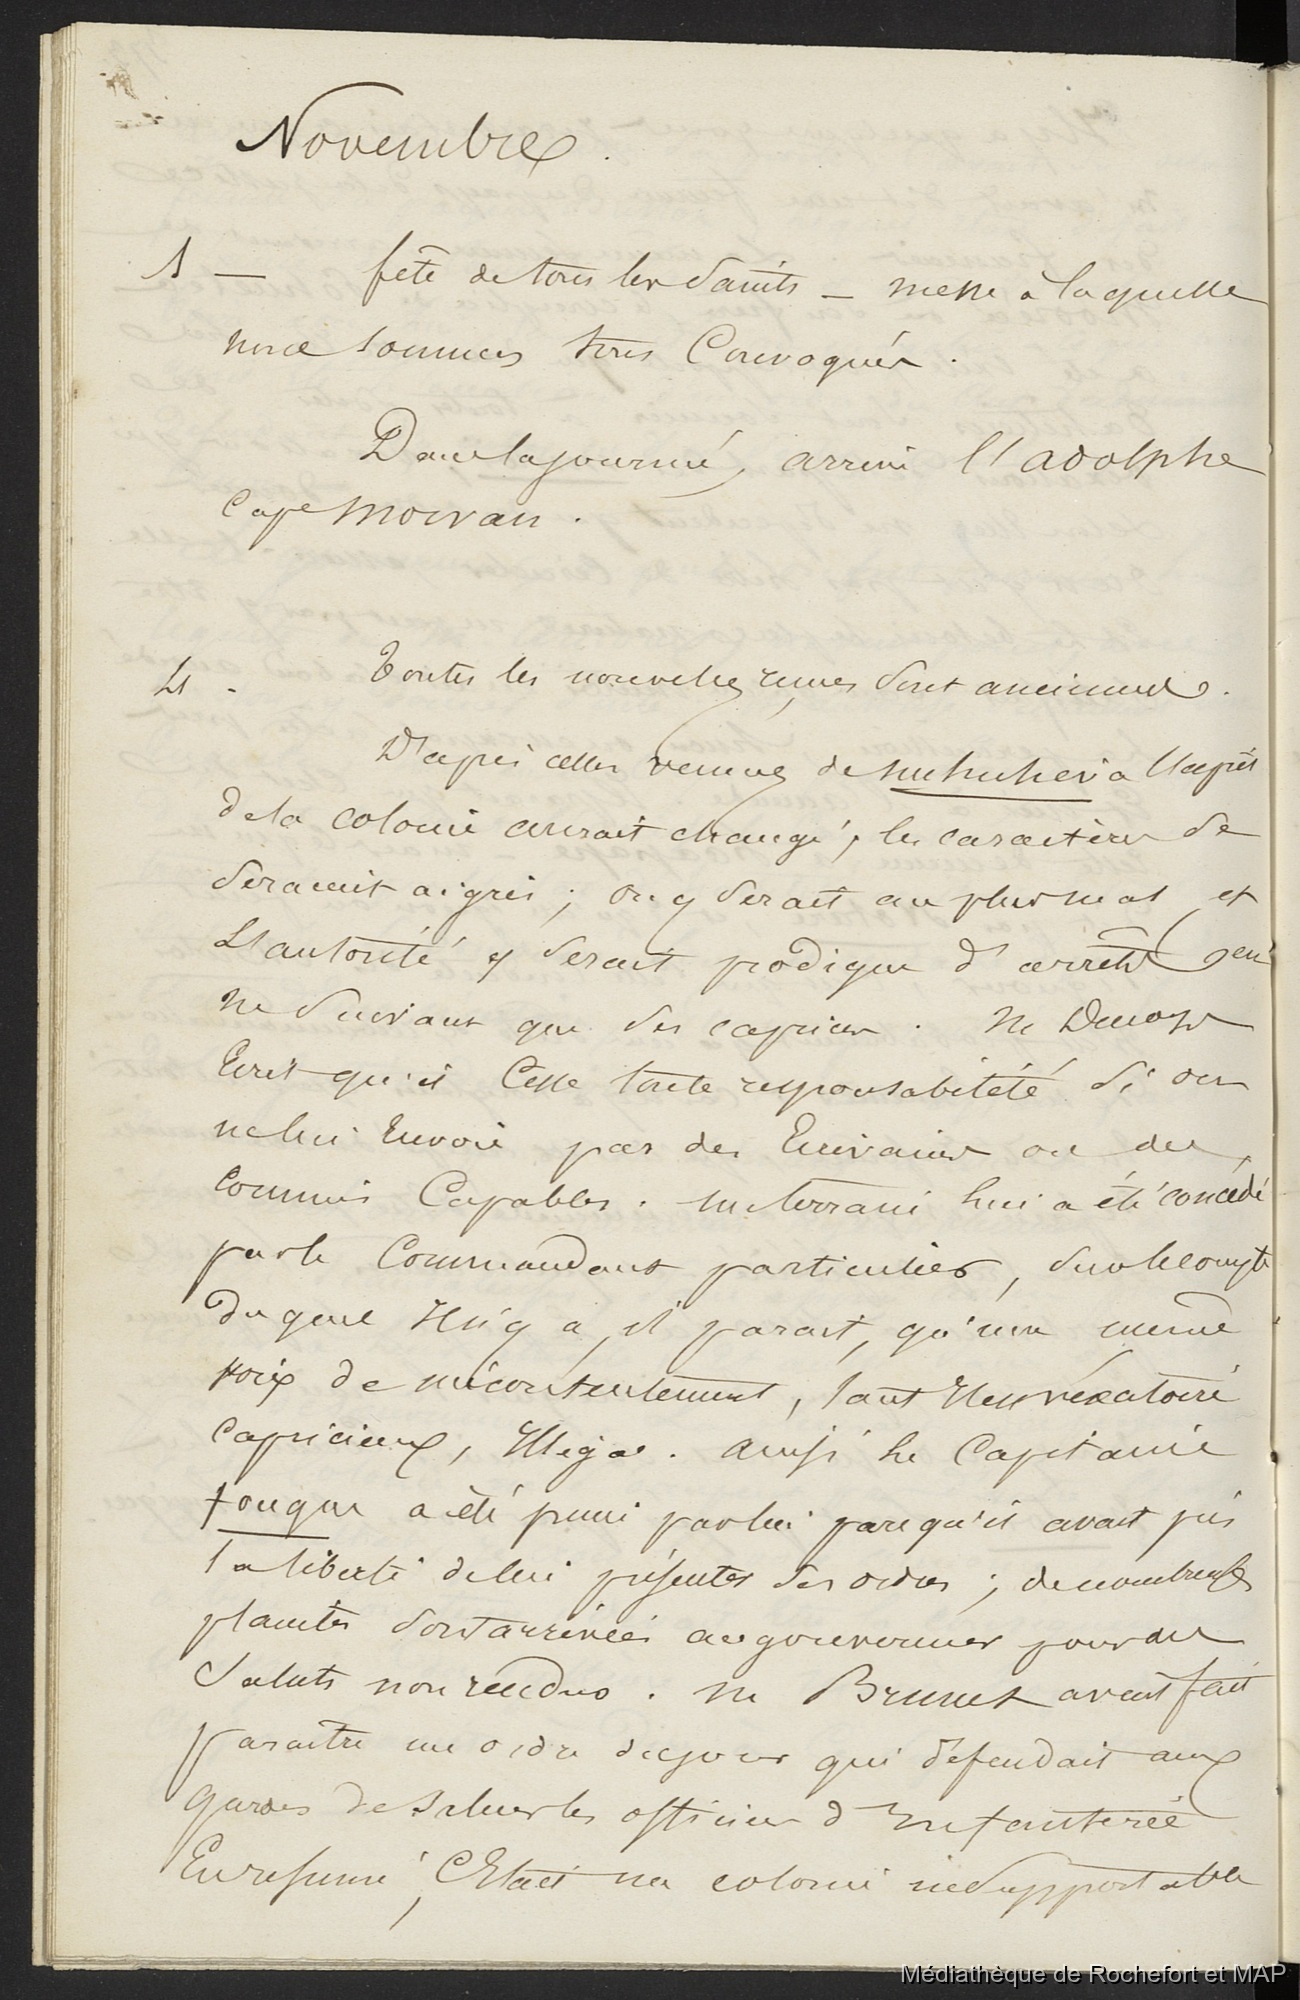 Novembre.
1 — fête de tous les Saints — messe à laquelle
nous sommes tous Convoqués.
Dans la journée, arrive l'adolphe
Cape morvan.
4. Toutes les nouvelles reçues sont anciennes.
D'après celles venues de nuhuheva l'esprit
de la colonie aurait changé, les caractères se
seraient aigris; on y serait au plus mal et
L'autorité y serait prodigue d'arrêts
ne suivant que ses caprices. M
Ecrit qu'il Cesse toute responsabilité si on
ne lui Envoie pas des Ecrivains ou des
commis Capables. un terrain lui a été concédé
par le Commandant particulier, sur le compte
duquel Il n'y a, il parait, qu'une même
voix de mécontentement, tant Il est vexatoire
capricieux, Illégal. ainsi le Capitaine
fouque a été puni par lui parcequ'il avait pris
la liberté de lui présenter ses ordres; de nombreuses
plaintes sont arrivées au gouverneur pour des
Saluts non rendus. M Brunet avait fait
paraître un ordre du jour qui défendait aux
gardes de saluer les officiers d'Infanterie
En résumé, C'Etait une colonie insupportable
Médiathèque de Rochefort et MAP